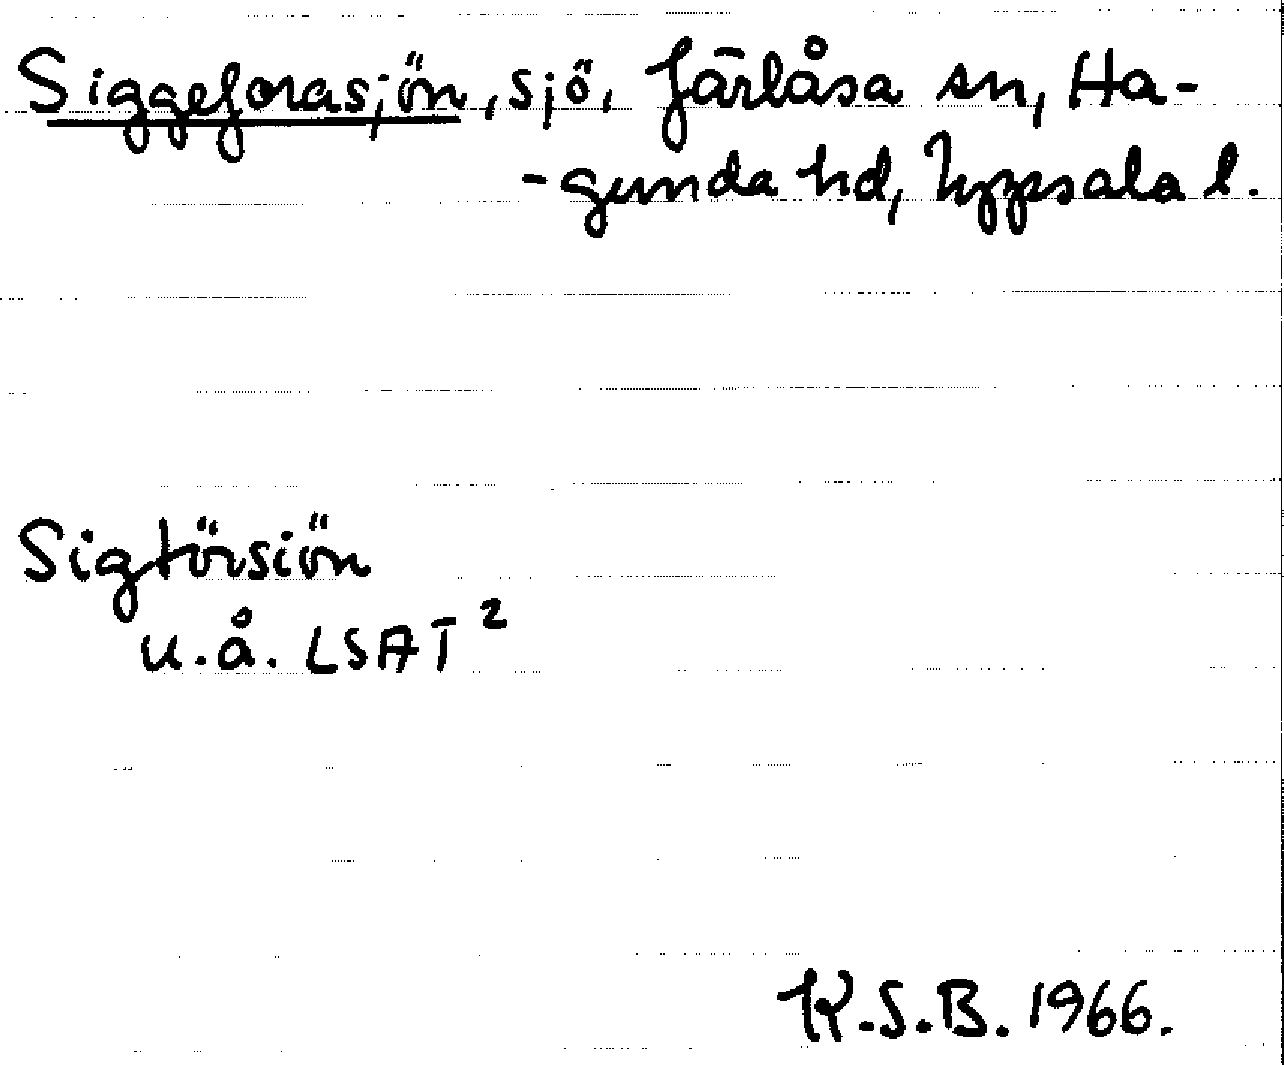 Siggeforasjön, sjö, Järlåsa sn, Ha-
-gunda hd, Uppsala l.
Sigtörsiön
u.å. LSAT²
K.S.B. 1966.